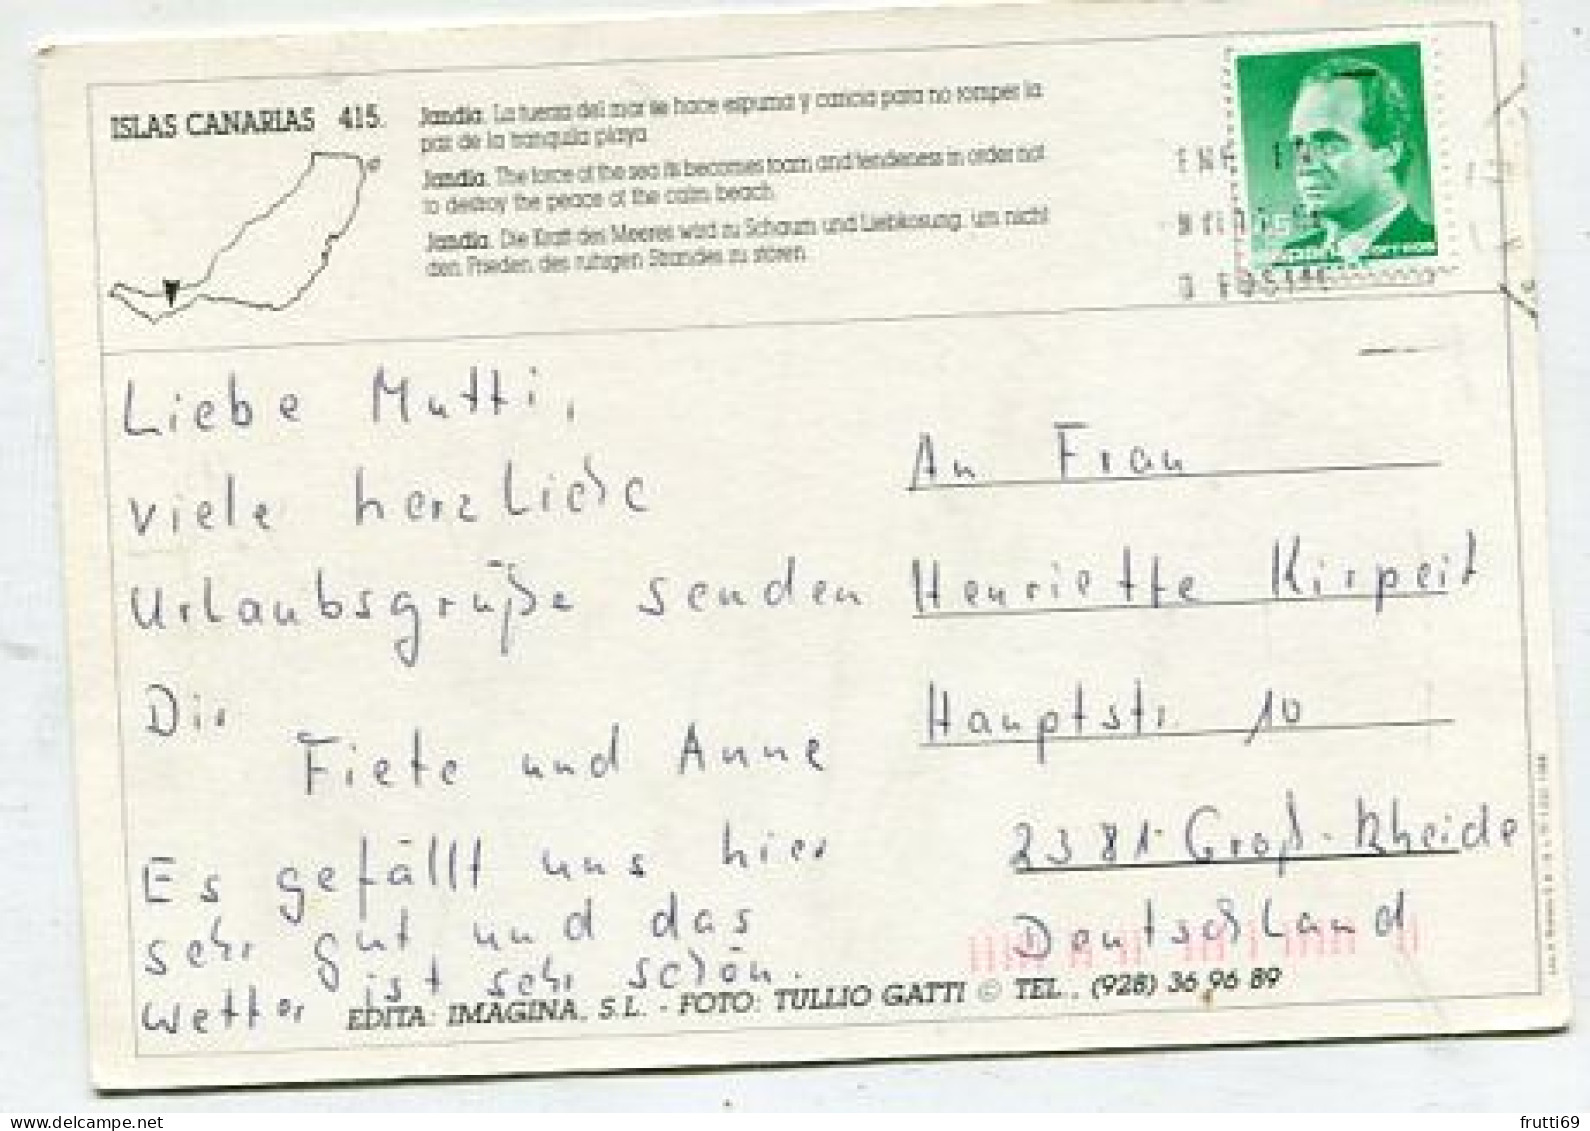 ISLAS CANARIAS 415.
Jandía. La fuerza del mar se hace espuma y caricia para no romper la
paz de la tranquila playa
Jandía. The force of the sea its becomes foam and tendeness in order not
to destroy the peace of the calm beach
Jandía. Die Kraft des Meeres wird zu Schaum und Liebkosung, um nicht
den Frieden des ruhigen Strandes zu stören
Liebe Mutti,
viele herzliche
Urlaubsgrüße senden
Dir
Fiete und Anne
Es gefällt uns hier
sehr gut und das
Wetter ist sehr schön.
An Frau
Henriette Kirpeit
Hauptstr. 10
2381 Groß-Rheide
Deutschland
EDITA: IMAGINA, S.L. - FOTO: TULLIO GATTI © TEL., (928) 36 96 89
www.delcampe.net
frutti69